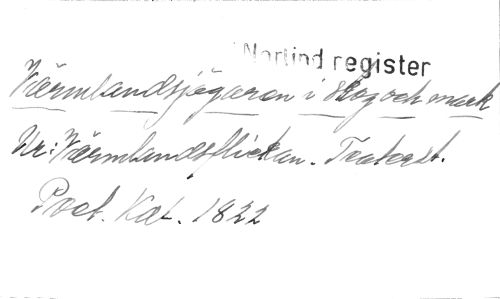 Nortind register
Värmlandsjägaren i skog och mark
Ur: Värmlandsflickan. Teaterst.
Poet. Kat. 1822